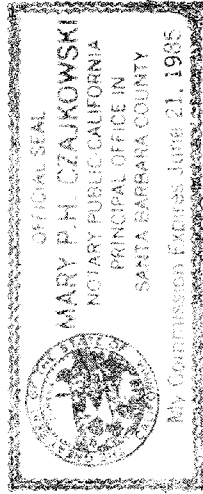 OFFICIAL SEAL
MARY P.H. CZAJKOWSKI
NOTARY PUBLIC CALIFORNIA
PRINCIPAL OFFICE IN
SANTA BARBARA COUNTY
My Commission Expires June 21, 1985